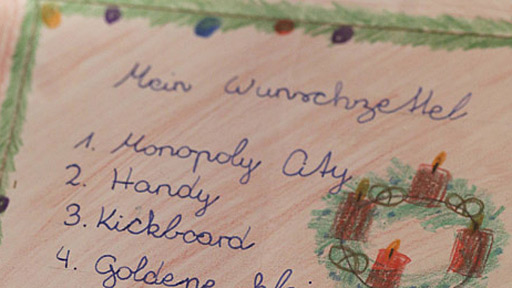 Mein Wunschzettel
1. Monopoly City
2. Handy
3. Kickboard
4. Goldene